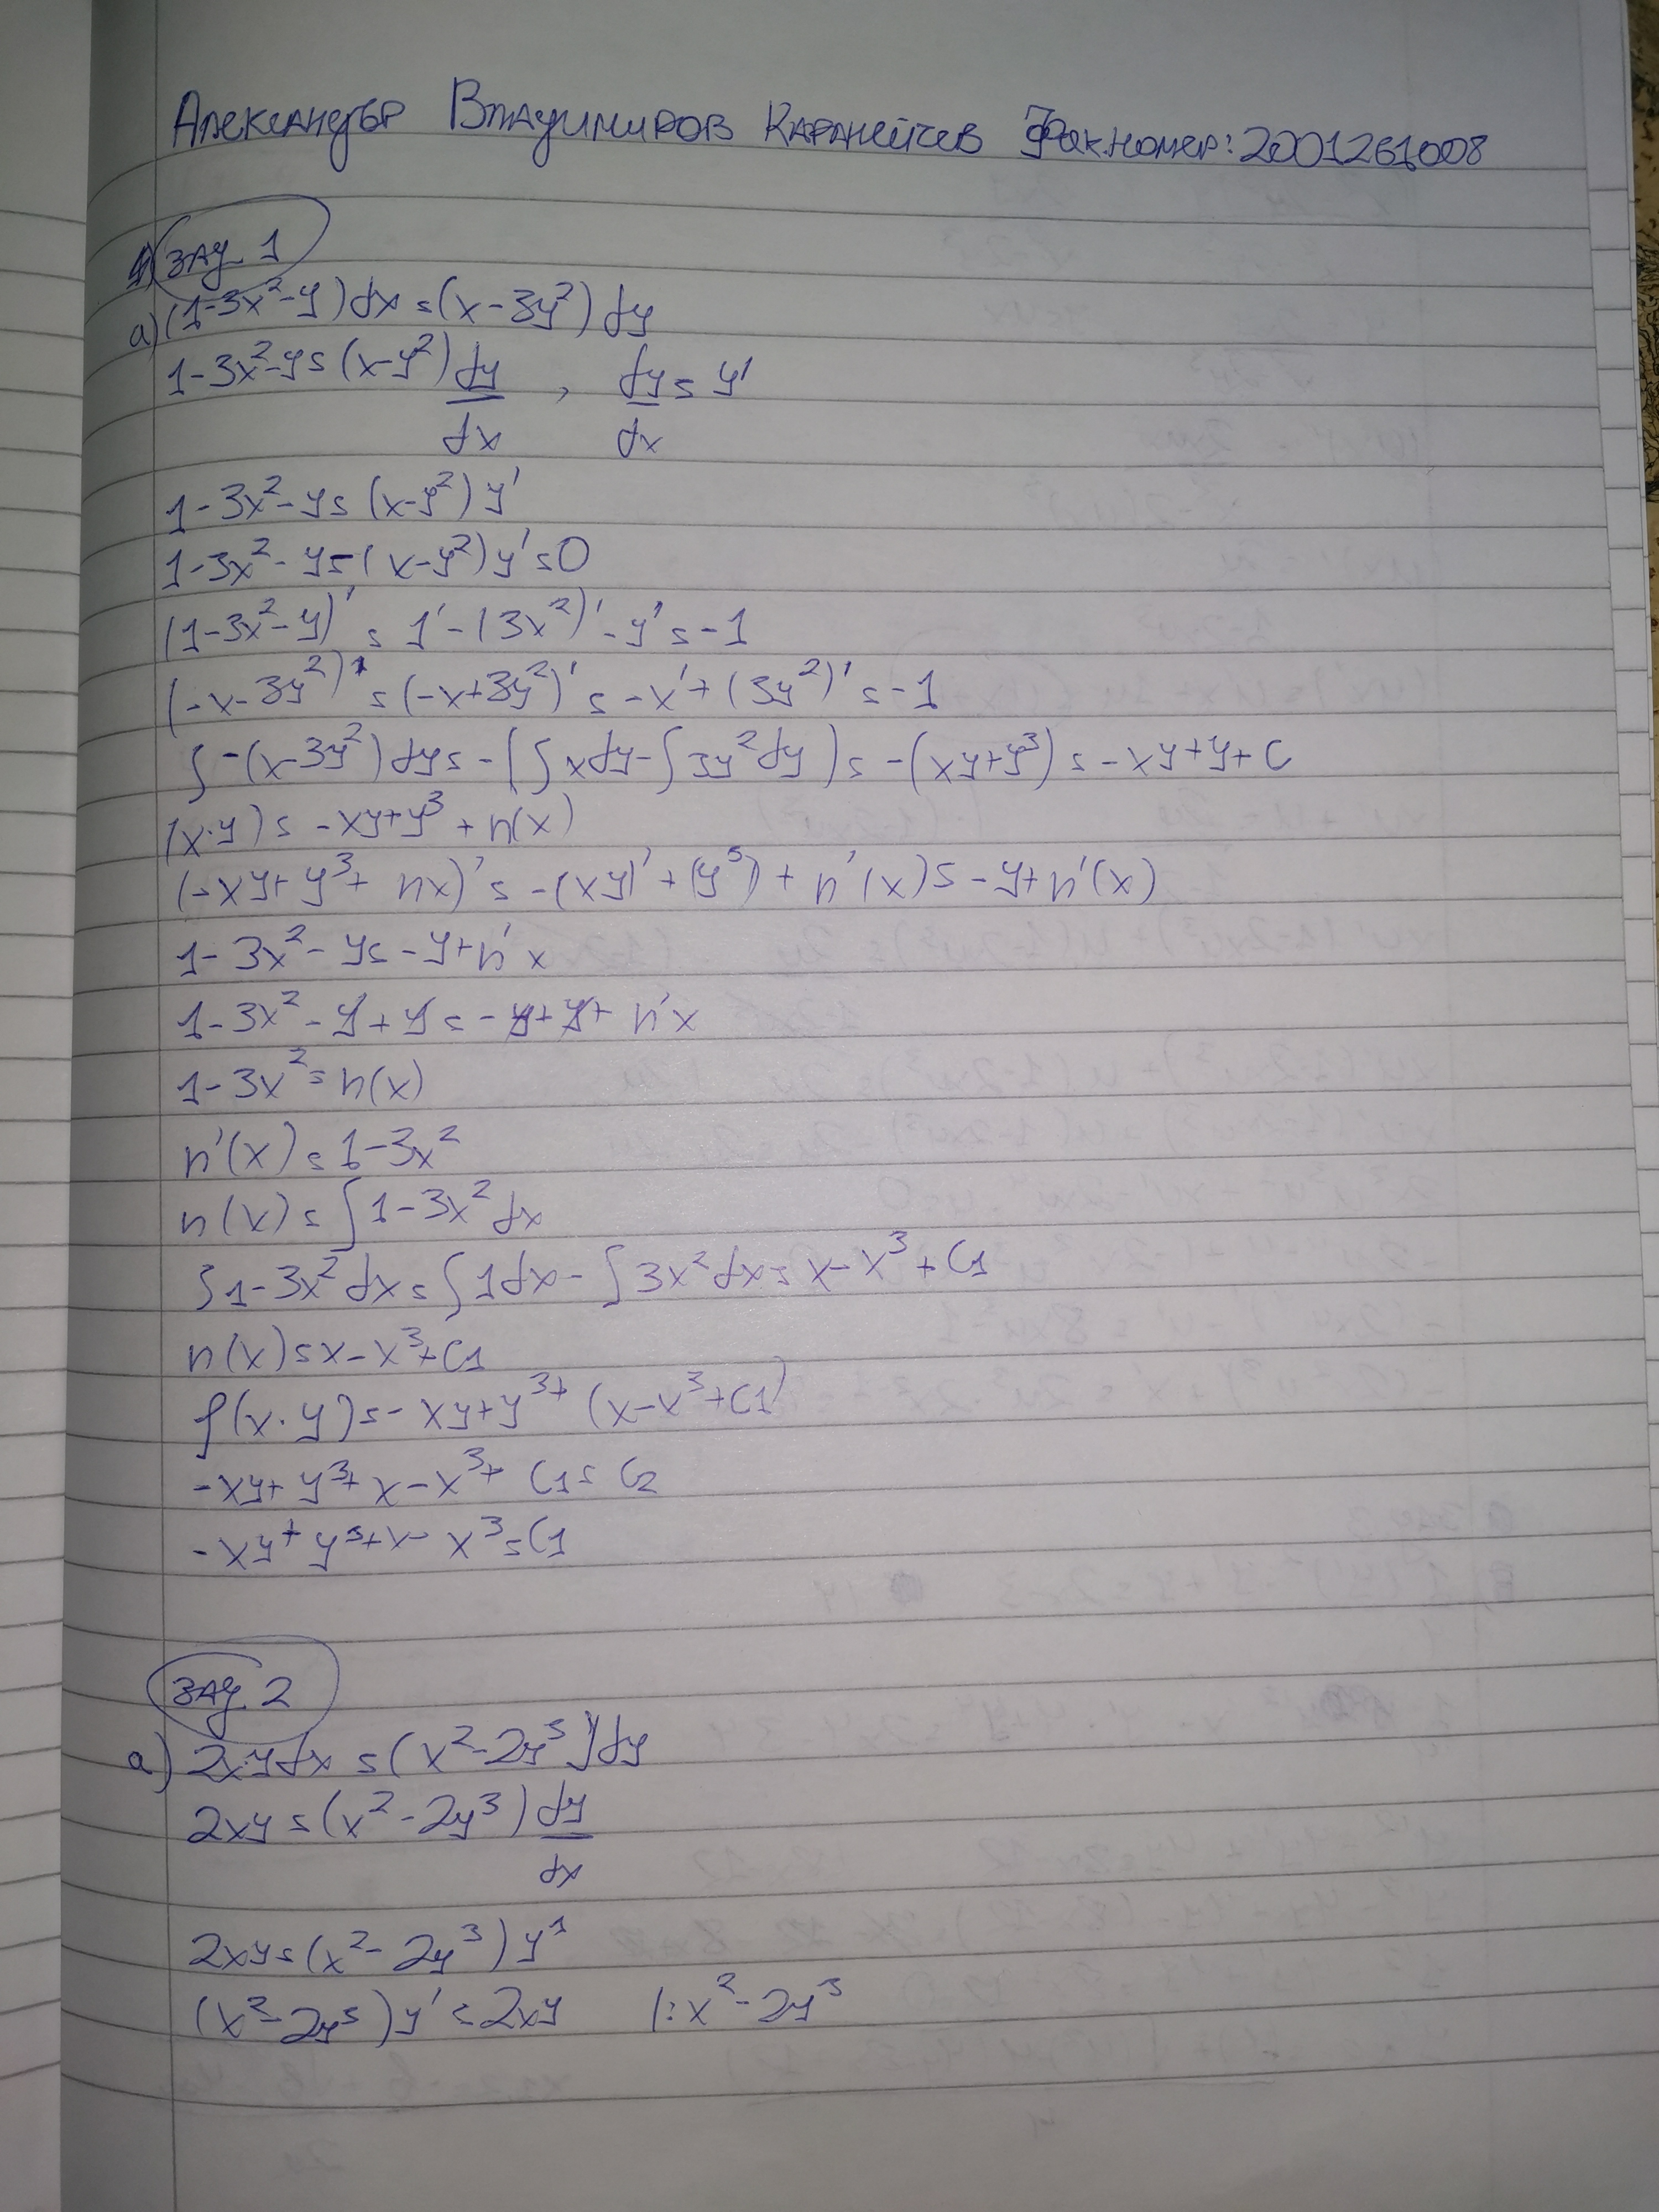 Александър Владимиров Каранейчев Фак.номер: 2001261008
зад. 1
а) (1-3x²-y)dx=(x-3y²)dy
1-3x²-y=(x-y²) dy/dx , dy/dx = y'
1-3x²-y=(x-y²)y'
1-3x²-y=-(x-y²)y'=0
(1-3x²-y)' = 1'-(3x²)'-y'=-1
(-x-3y²)' = (-x+3y²)' = -x'+(3y²)' = -1
∫-(x-3y²)dy=-(∫xdy-∫3y²dy)=-(xy+y³)=-xy+y+C
(x.y)=-xy+y³+n(x)
(-xy+y³+nx)'=-(xy)'+(y³)+n'(x)=-y+n'(x)
1-3x²-y=-y+n'x
1-3x²-y+y=-y+y+n'x
1-3x²=n(x)
n'(x)=1-3x²
n(x)=∫1-3x²dx
∫1-3x²dx=∫1dx-∫3x²dx=x-x³+C1
n(x)=x-x³+C1
f(x.y)=-xy+y³+(x-x³+C1)
-xy+y³+x-x³+C1=C2
-xy+y³+x-x³=C1
зад. 2
а) 2xydx=(x²-2y³)dy
2xy=(x²-2y³) dy/dx
2xy=(x²-2y³)y'
(x²-2y³)y'=2xy |:x²-2y³